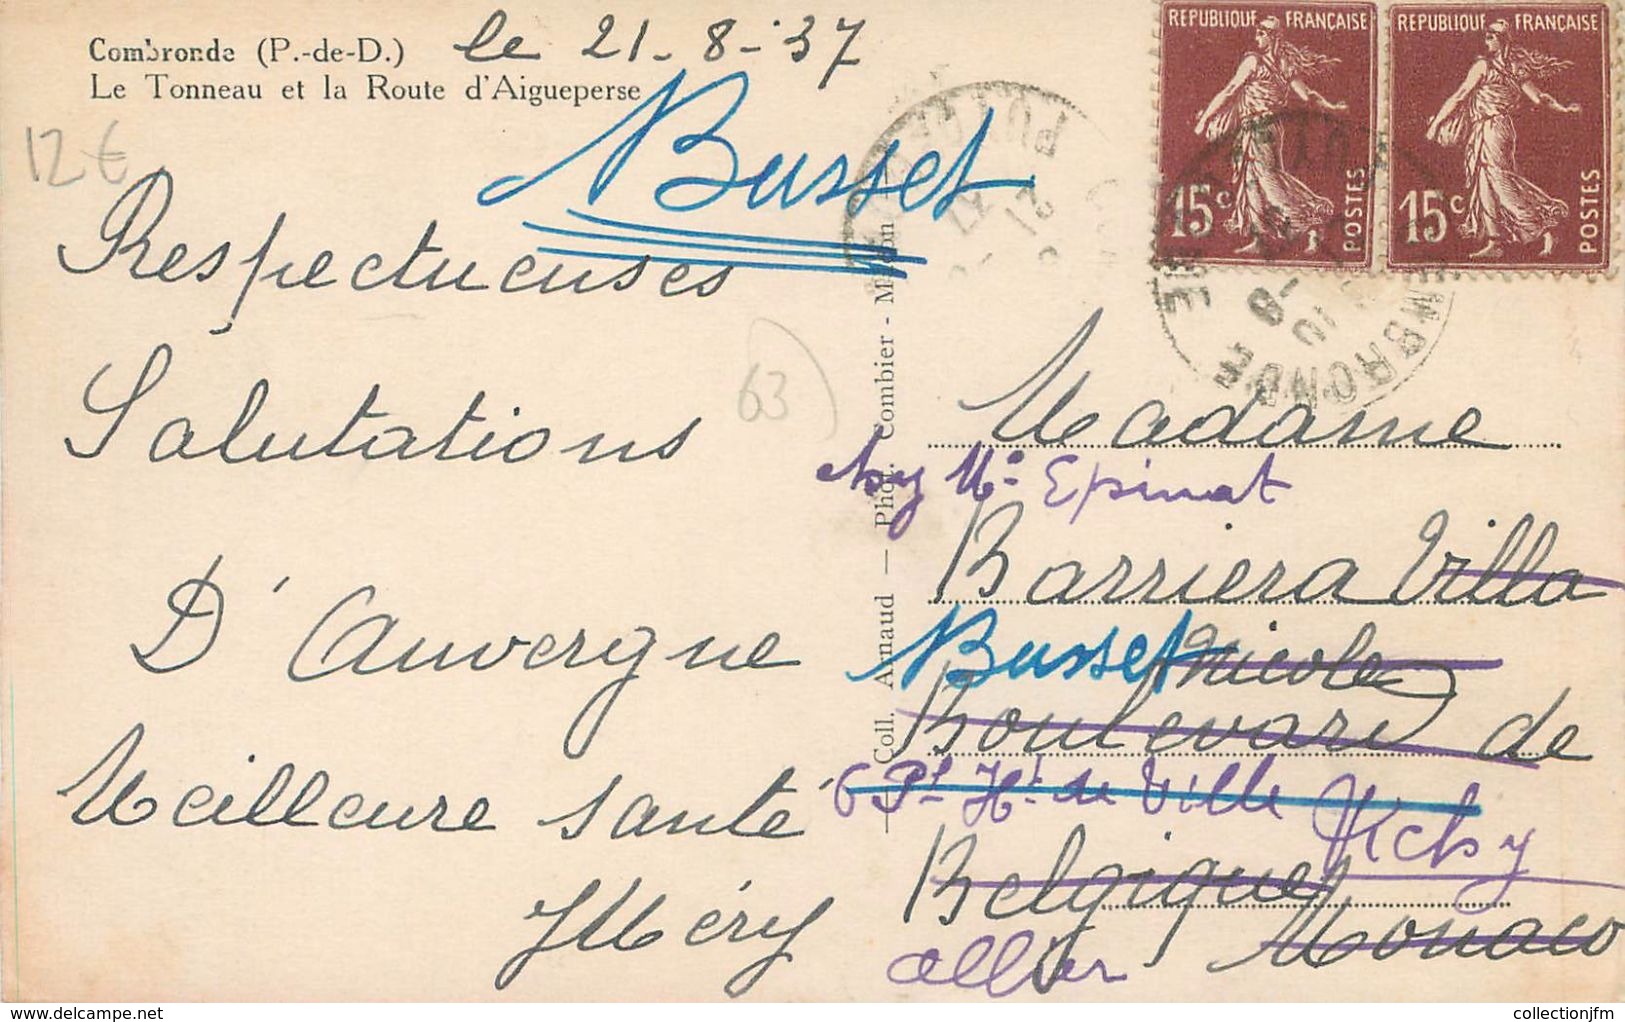 Combronde (P.-de-D.) le 21-8-37
Le Tonneau et la Route d'Aigueperse
12€
Busset
Respectueuses
Salutations
D'Auvergne
Meilleure santé
Méry
63
Coll. Arnaud — Phot. Combier - Macon
REPUBLIQUE FRANÇAISE
15c
POSTES
REPUBLIQUE FRANÇAISE
15c
POSTES
COMBRONDE
PUY DE DOME
21
8
37
Madame
chez Me Epinat
Barriera Villa
Busset Nicole
Boulevard de
6 Pl. Hl de Ville Vichy
Belgique
Monaco
Allier
www.delcampe.net
collectionjfm